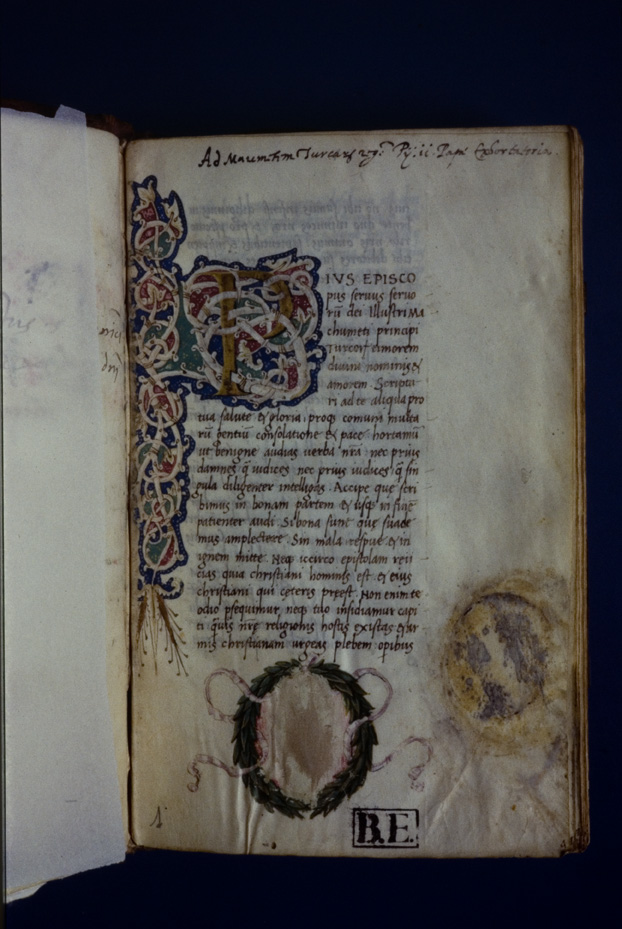 Ad Maumethem Turcarum regem Py. ii. Pape Exhortatoria.
PIVS EPISCO
pus seruus seruo
rū dei Illustri Ma
chumeti principi
Turcorꝝ timorem
diuini nominis &
amorem. Scriptu
ri ad te aliqua pro
tua salute & gloria, proqꝫ comuni multa
rū gentiū consolatione & pace hortamur
ut benigne audias uerba nr̄a nec prius
damnes q̄ iudices nec prius iudices q̄ sin
gula diligenter intelligas. Accipe que scri
bimus in bonam partem & usqꝫ in finē
patienter audi. Si bona sunt que suade
mus amplectere. Sin mala respue & in
ignem mitte. Neqꝫ iccirco epistolam reii
cias quia christiani hominis est & eius
christianis qui ceteris preest. Non enim te
odio psequimur, neqꝫ tuo insidiamur capi
ti q̄uis nr̄e religionis hostis existas & ar
mis christianam urgeas plebem opibus
1
B.E.